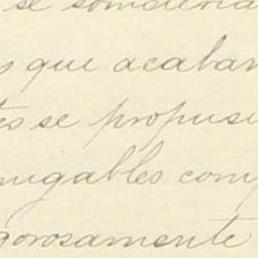 se someteria
s que acaban
tes se propusi
nugables comp
gorosamente